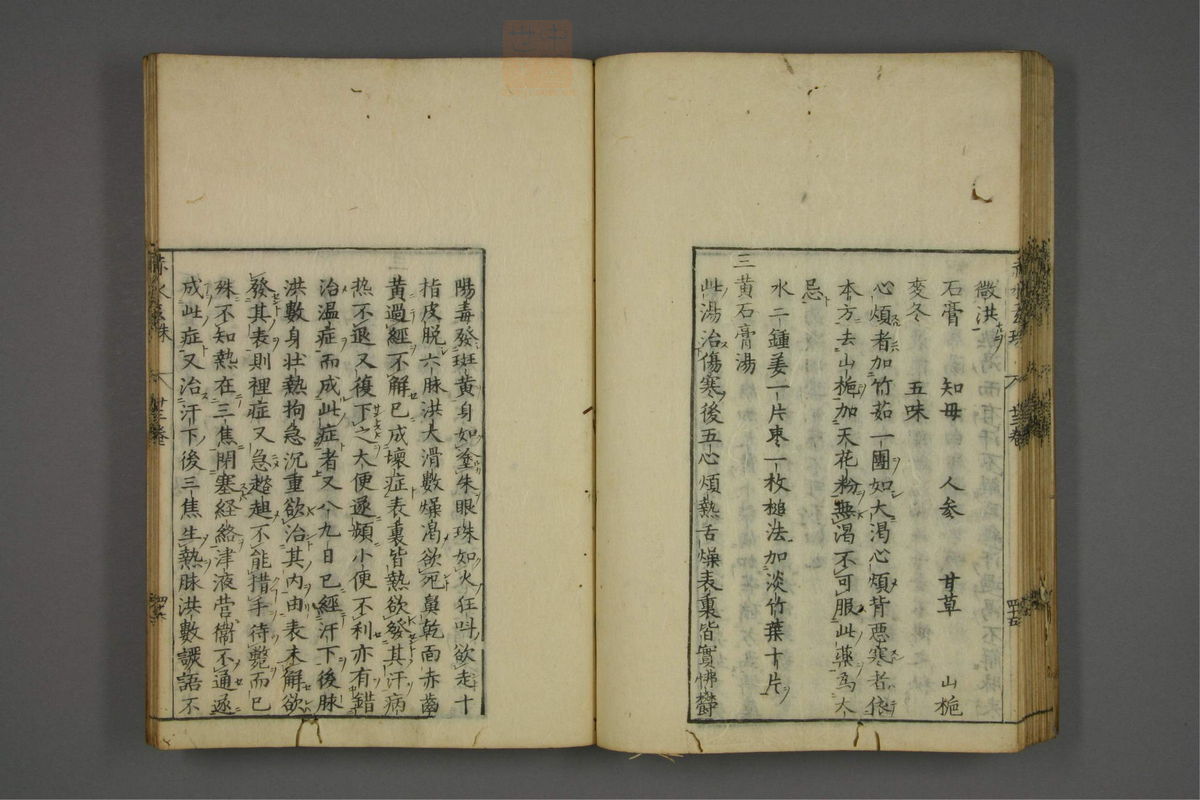 微洪
石膏　知母　人参　甘草　山梔
麦冬　五味
心煩者加竹茹一團如大渇心煩背悪寒者依
本方去山梔加天花粉無渇不可服此薬為大
忌
水二鍾姜一片枣一枚槌法加淡竹葉十片
三黄石膏湯
此湯治傷寒後五心煩熱舌燥表裏皆實怫欝
陽毒發斑黄身如塗朱眼珠如火狂叫欲走十
指皮脱六脉洪大滑數燥渇欲死鼻乾面赤齒
黄過經不解已成壞症表裏皆熱欲發其汗病
热不退又復下之大便遂頻小便不利亦有錯
治温症而成此症者又八九日已經汗下後脉
洪數身壮熱拘急沉重欲治其内由表未解欲
發其表則裡症又急趦趄不能措手待斃而已
殊不知熱在三焦閉塞経絡津液营衞不通遂
成此症又治汗下後三焦生熱脉洪數讝語不